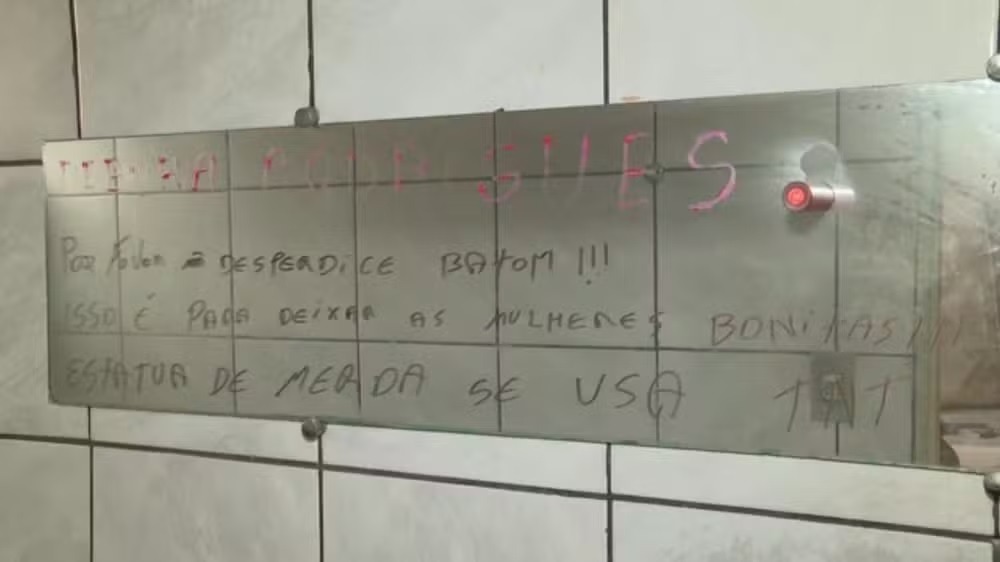 RODRIGUES
Por Favor ñ DESPERDICE BATOM !!!
ISSO É PARA DEIXAR AS MULHERES BONITAS !!!
ESTATUA DE MERDA SE USA TNT